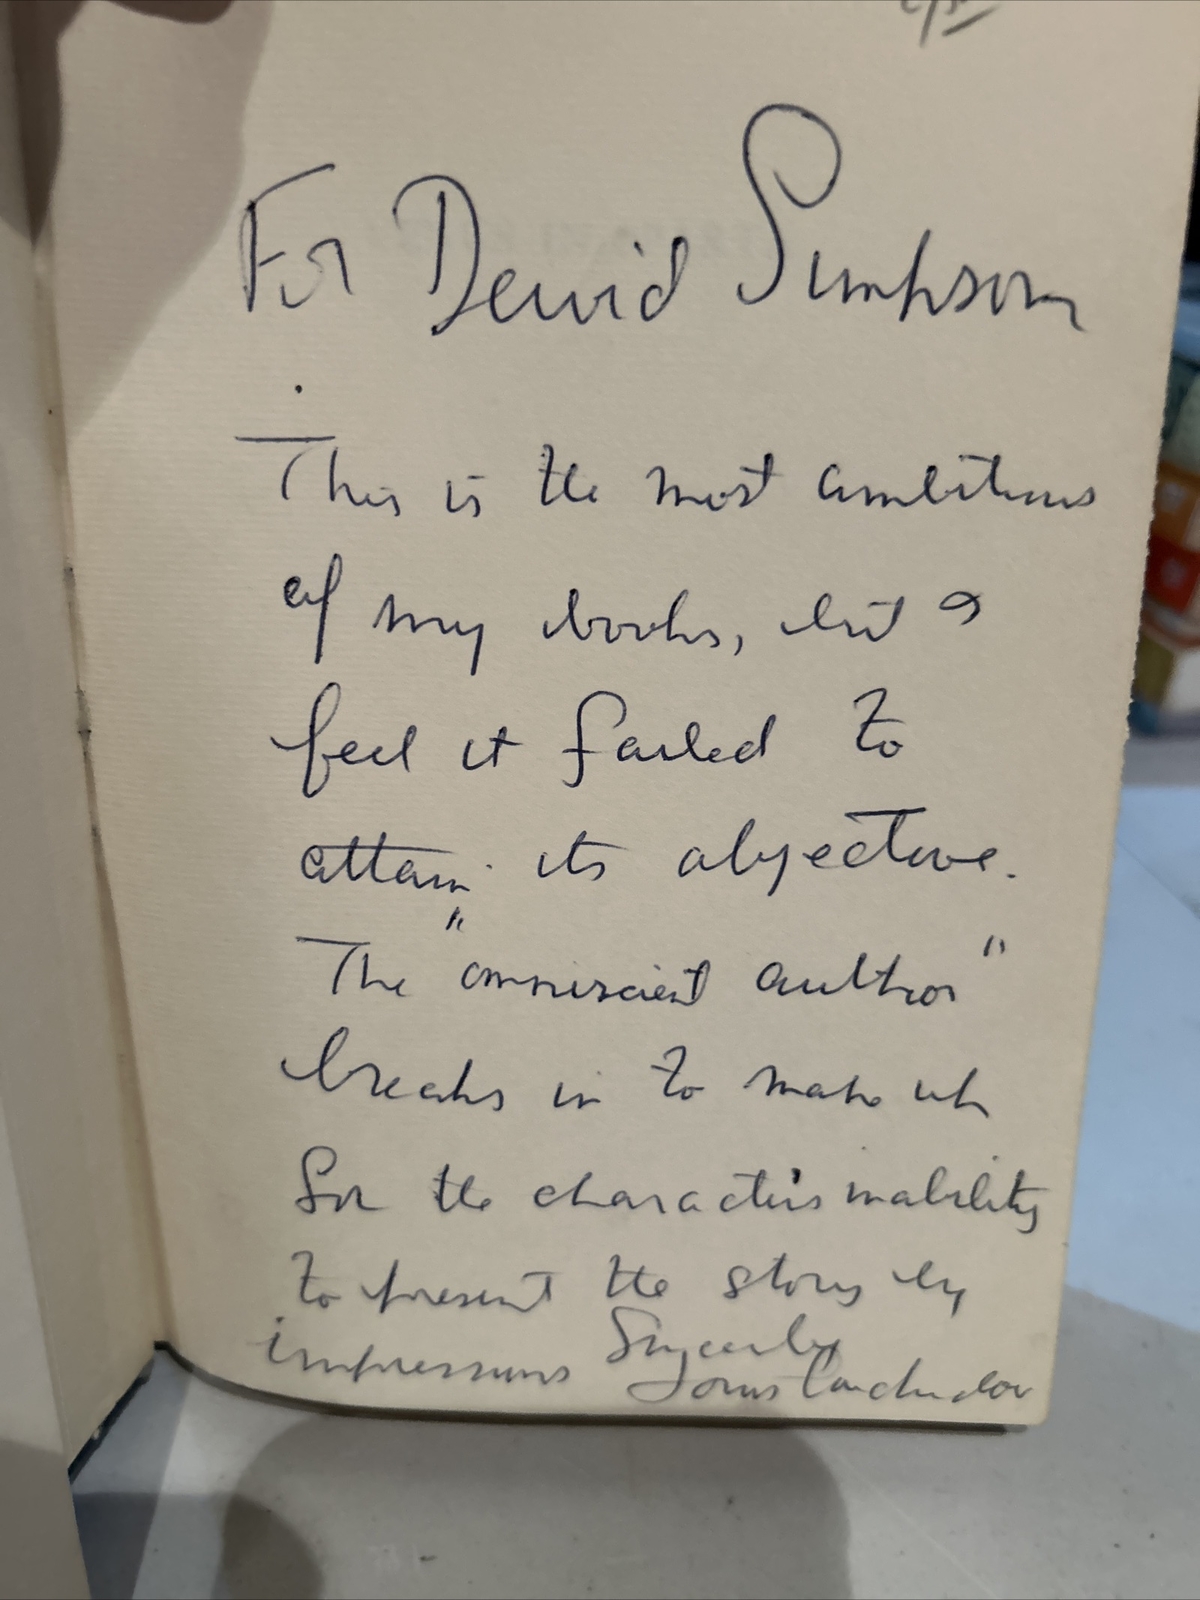 For David Simpson
This is the most ambitious
of my books, but I
feel it failed to
attain its objective.
The "omniscient author"
breaks in to make up
for the character's inability
to present the story by
impressions Sincerely
Louis